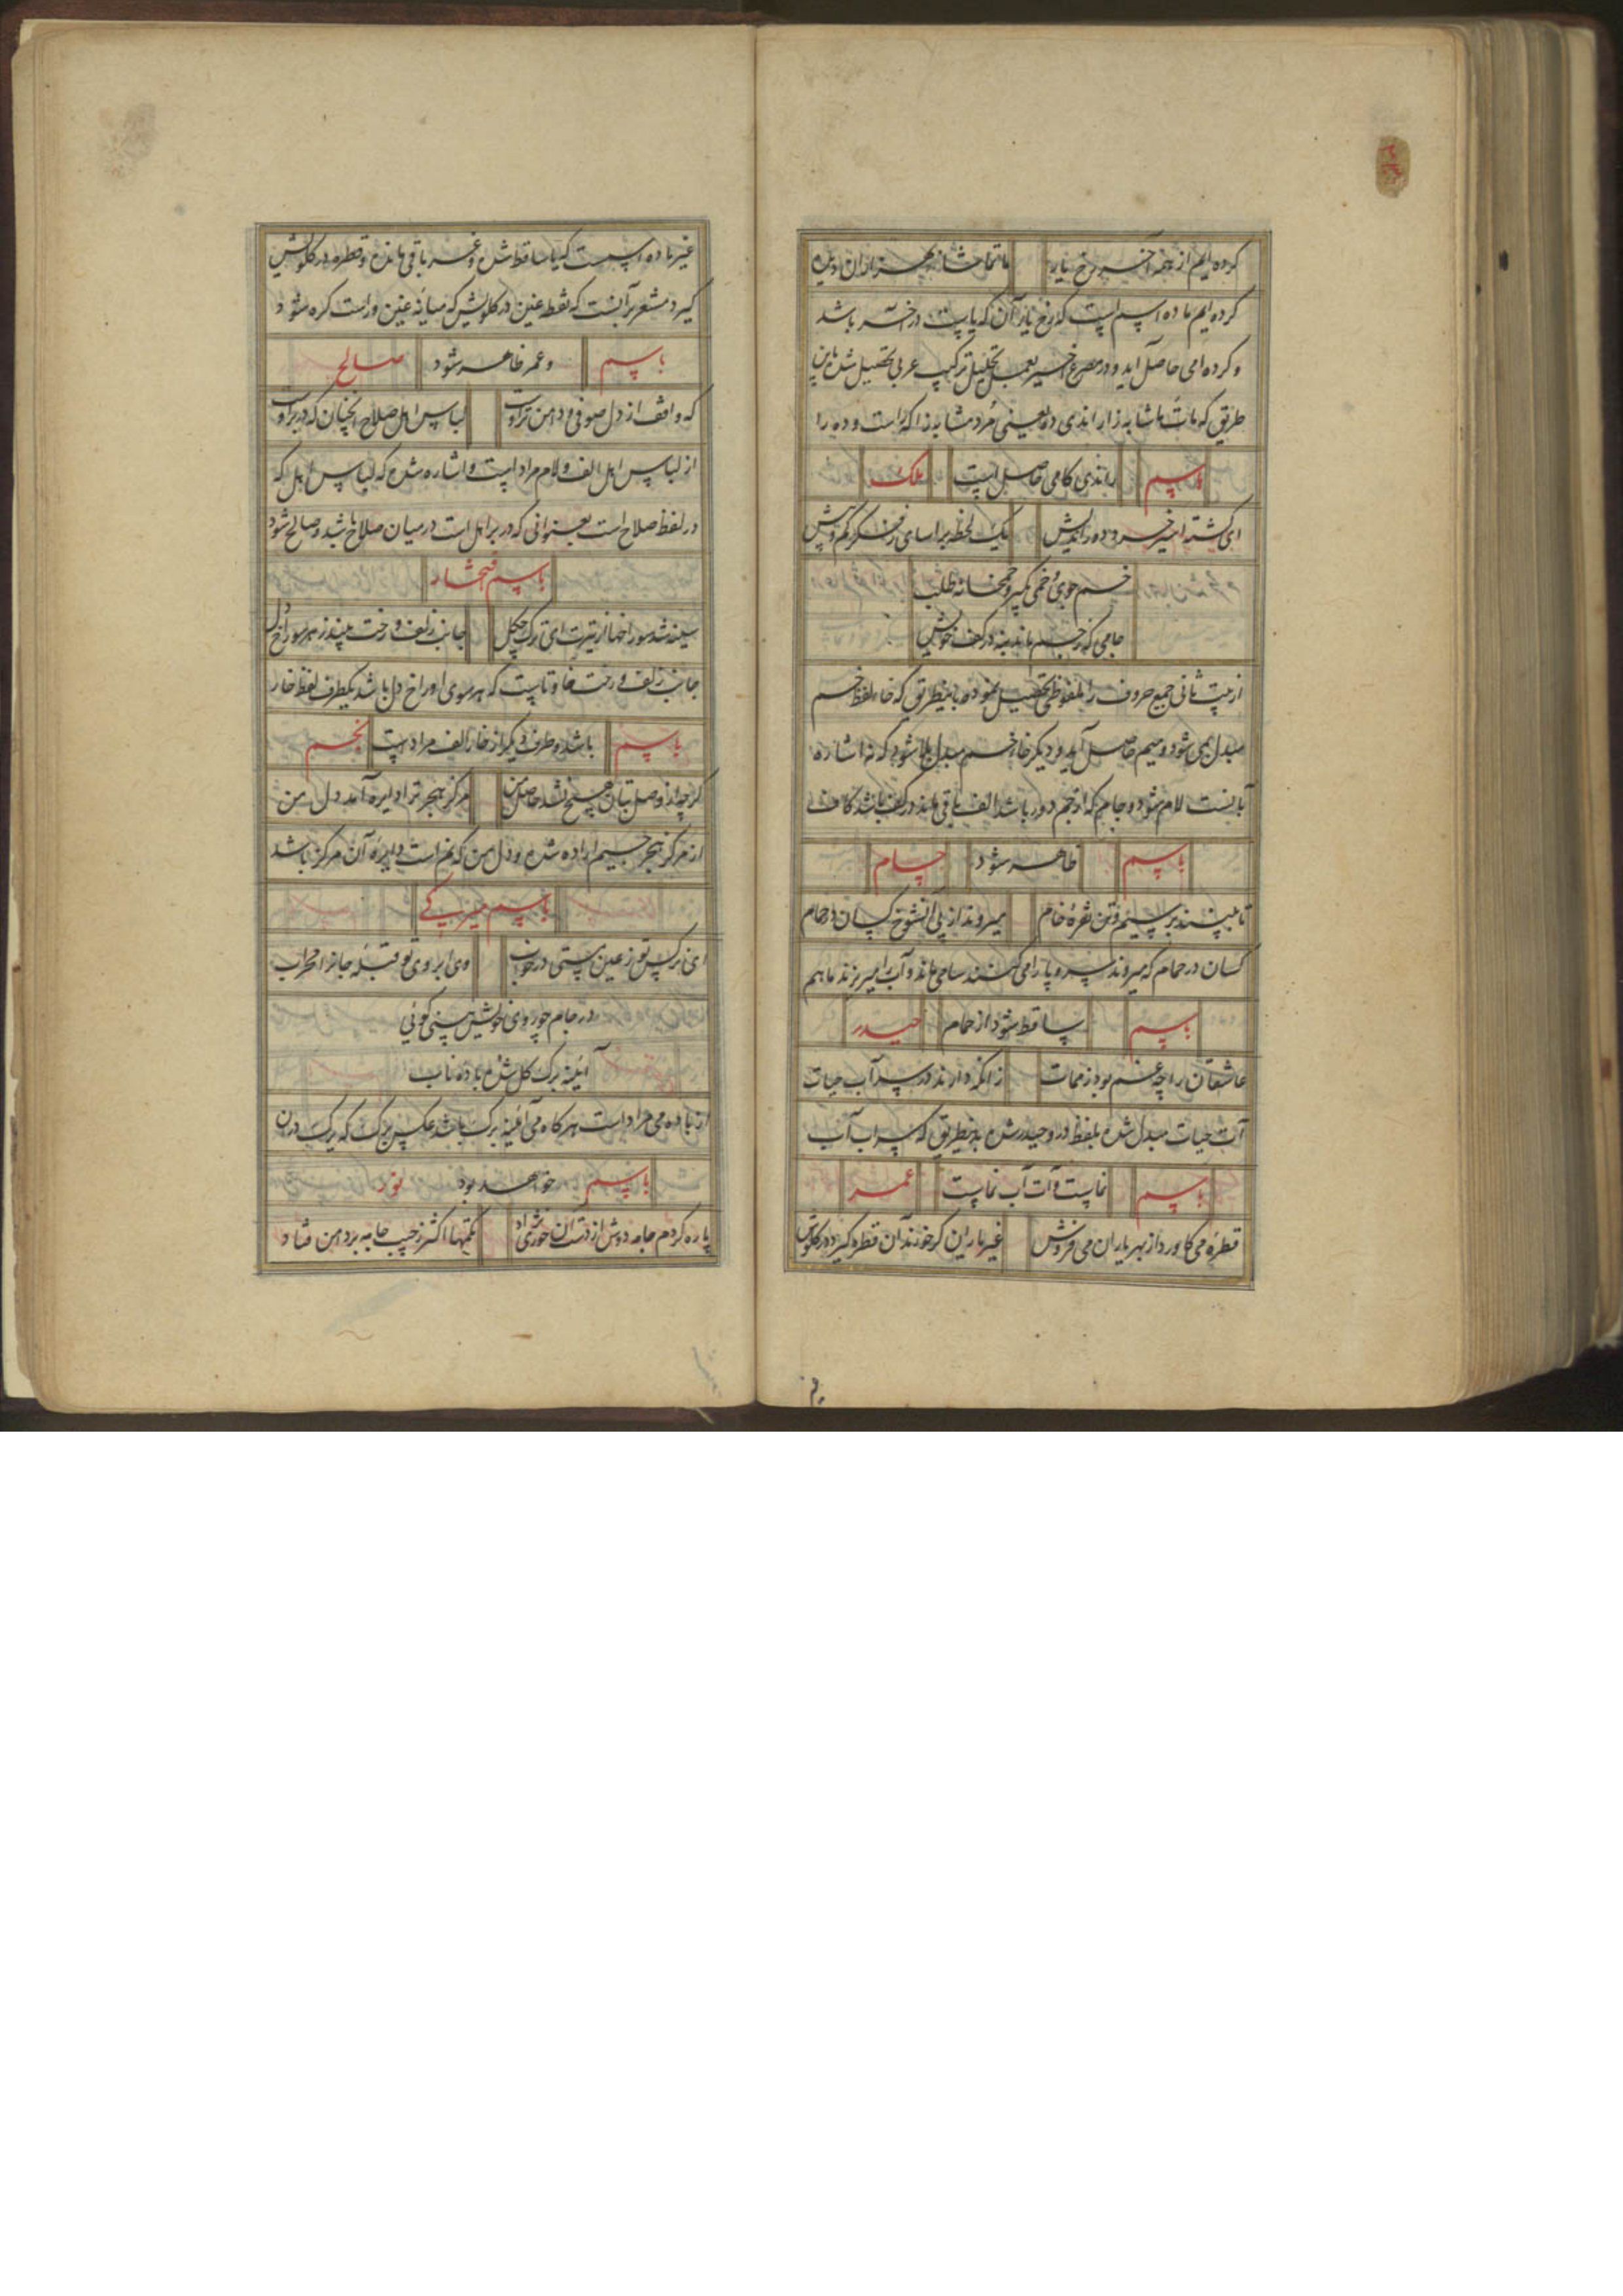 کرده ایم از همه آخر رخ یار ما تماشا بهتر ازان دیده
کرده ایم ماده اسم است که رخ یار آن که یاست در آخر باشد
و کرده امی حاصل آید و در مصرع اخیر بعمل تحلیل ترکیب عربی تحصیل شده باین
طریق که مات ما شابه زار اندی ده یعنی مُرد مشابه زا که را است و ده را
باسم راندی کامی حاصل است ملک
ای گشته اسیر خرد دوراندیش یک لحظه براسای ز فکر کم و بیش
خم جوی خمی گیر و خمخانه طلب
جامی که ز جم ماند بنه در کف خویش
از بیت ثانی جمیع حروف را ملفوظی تحصیل نموده باینطریق که خاء لفظ خم
مبدل بمی شود و میم حاصل آید و دیگر خاء خم مبدل بلا شود که نه اشاره
بآنست لام شود و جام که از جم دور باشد الف باقی ماند در کف باشد کاف
باسم ظاهر شود حسام
تا ببینند بر سیم و تن نقره خام میروند از پی آنشوخ کسان در حمام
کسان در حمام که میروند سر و پا را می کنند سامی ماند و آب را میریزند ما هم
باسم ساقط شود از حمام حیدر
عاشقان را چه غم بود ز ممات زانکه دارند در سر آب حیات
آب حیات مبدل شده بلفظ در و حیدر شده بدینطریق که سراب آب
باسم نماست و آت آب نماست عمر
قطره می کاورد از بهر یاران می فروش غیر یاران گر خورند آن قطره گیرد در گلوش
غیر ماده اسم است که یا ساقط شده و غر باقی مانده و قطره در گلویش
گیرد مشعر بر آنست که نقطه غین در گلویش که میانه غین و راست گره شود
باسم و عمر ظاهر شود صالح
که واقف از دل صوفی و دامن تر اوست لباس اهل صلاح آنچنان که در بر اوست
از لباس اهل الف و لام مراد است و اشاره شده که لباس اهل که
در لفظ صلاح است بعنوانی که در بر اهل است در میان صلاح باشد و صالح شود
باسم
سینه شد سوراخها از تیرت ای ترک چگل جانب زلف و رخت بیند ز هر سوراخ دل
جانب زلف و رخت فا و تاست که هر سوی اوراخ دل باشد یکطرف لفظ خار
باسم باشد و طرف دیگر از خار الف مراد است نجم
گرچه از وصل بتان هیچ نشد حاصل من مرکز هجر ترا دایره آمد دل من
از مرکز هجر جیم اراده شده و دل من که نم است دایره آن مرکز باشد
باسم میربیکی
ای نرگس تو ز عین مستی در خواب وی ابروی تو قبله جانرا محراب
در جام چو روی خویش بینی گویی
آینه برگ گل شده باده ناب
از باده می مراد است هرگاه می آئینه برگ باشد عکس برگ که یرک در آن
باسم خواهد بود نور
پاره کردم جامه دوش از دست آن خورشیدزاد تکمها اکثر ز جیب جامه بر دامن فتاد